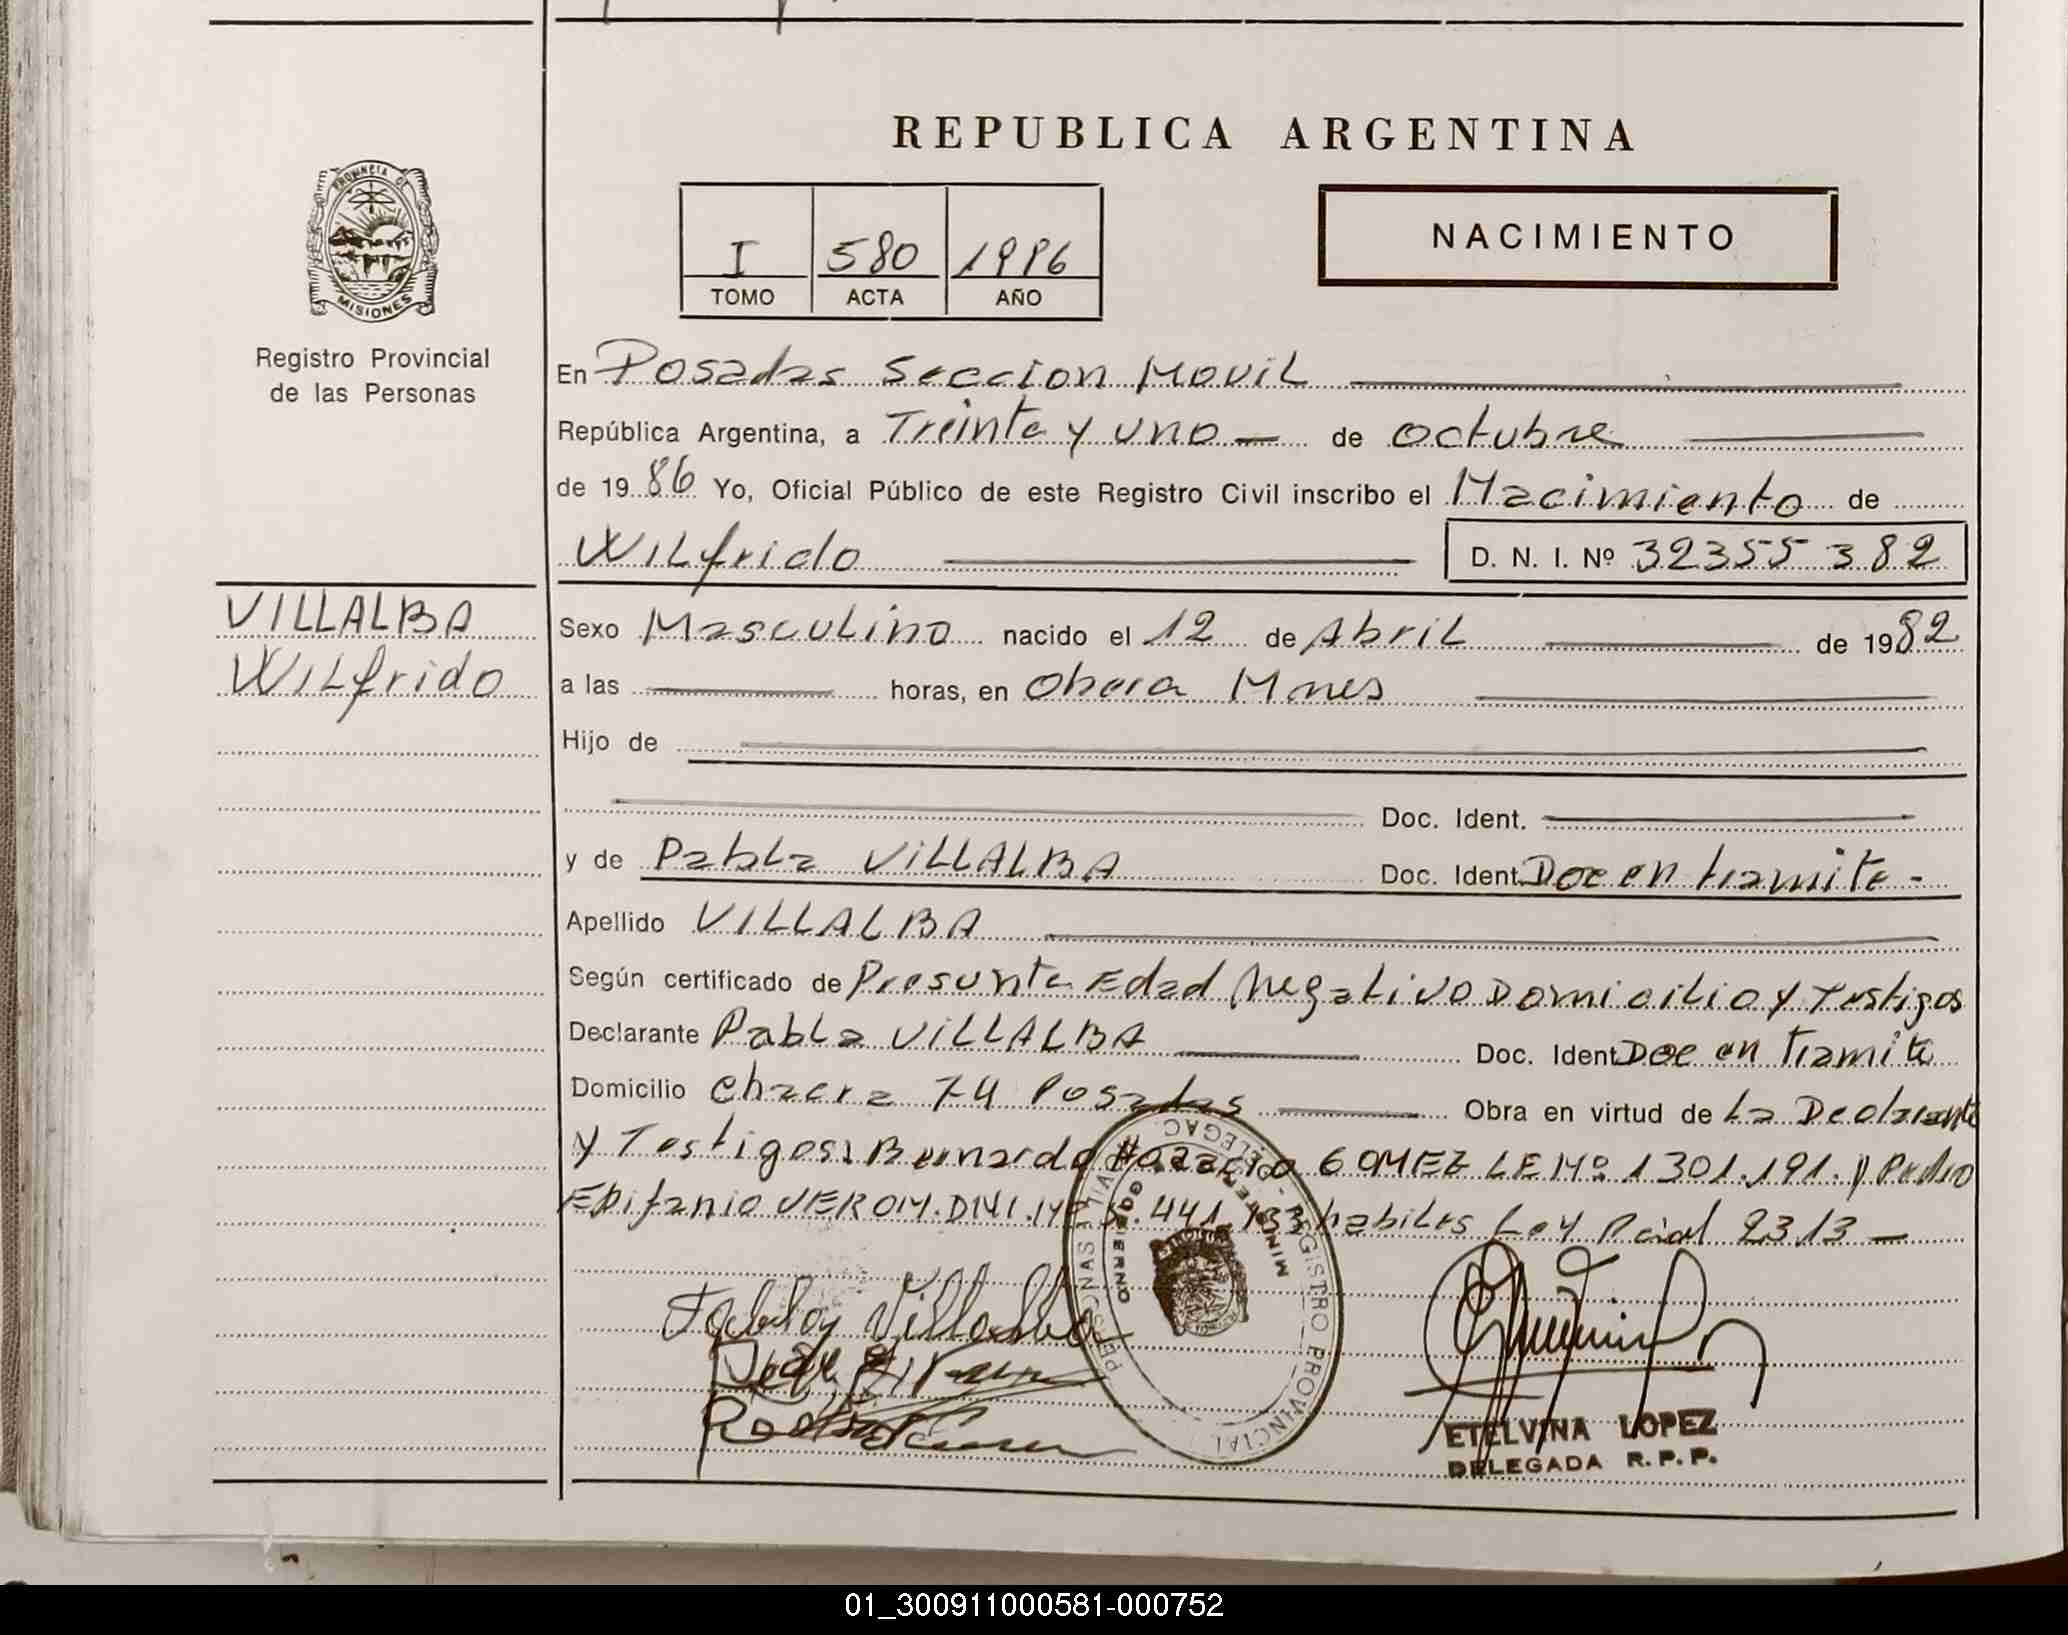 REPUBLICA ARGENTINA
PROVINCIA DE
MISIONES
Registro Provincial
de las Personas
I 580 1986
TOMO ACTA AÑO
NACIMIENTO
En Posadas Seccion Movil
República Argentina, a Treinta y uno de octubre
de 1986 Yo, Oficial Público de este Registro Civil inscribo el Nacimiento de
Wilfrido D. N. I. Nº 32355382
VILLALBA
Wilfrido
Sexo Masculino nacido el 12 de Abril de 1982
a las horas, en Obera Mnes
Hijo de
Doc. Ident.
y de Pabla VILLALBA Doc. Ident. Doc en tramite -
Apellido VILLALBA
Según certificado de Presunta Edad Negativo Domicilio y Testigos
Declarante Pabla VILLALBA Doc. Ident. Doc en Tramite
Domicilio Chacra 74 Posadas Obra en virtud de La Declarante
y Testigos: Bernardo Nazario GOMEZ LE Nº 1301.191. y Pedro
Epifanio VERON. DNI. Nº 5.441.133 habiles Ley Pcial 2313 -
REGISTRO PROVINCIAL
PERSONAS
MINISTERIO DE GOBIERNO
Villalba
ETELVINA LOPEZ
DELEGADA R. P. P.
01_300911000581-000752